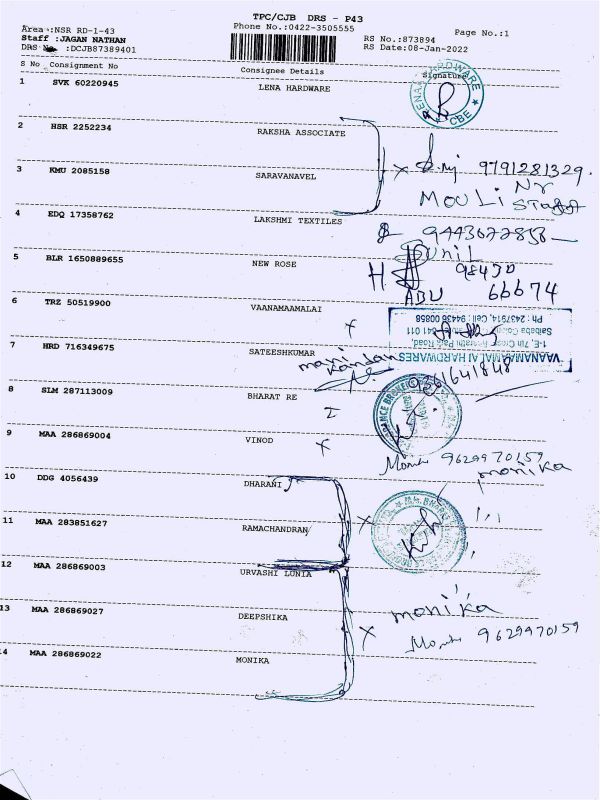 TPC/CJB DRS - P43
Area :NSR RD-1-43
Phone No.:0422-3505555
Page No.:1
Staff :JAGAN NATHAN
RS No.:873894
DRS No :DCJB87389401
RS Date:08-Jan-2022
S No Consignment No Consignee Details Signature
1 SVK 60220945 LENA HARDWARE
CBE
2 HSR 2252234 RAKSHA ASSOCIATE
3 KMU 2085158 SARAVANAVEL
x 9791281329.
MOULI
4 EDQ 17358762 LAKSHMI TEXTILES
Sunil
5 BLR 1650889655 NEW ROSE
98430
ABU 66674
6 TRZ 50519900 VAANAMAAMALAI
x
Ph : 2437914, Cell : 94436 00858
VAANAMAMALAI HARDWARES
7 HRD 716349675 SATEESHKUMAR
mani
kandan
8 SLM 287113009 BHARAT RE
9 MAA 286869004 VINOD
x
9629970159
monika
10 DDG 4056439 DHARANI
11 MAA 283851627 RAMACHANDRAN
x
12 MAA 286869003 URVASHI LUNIA
13 MAA 286869027 DEEPSHIKA
monika
x
9629970159
14 MAA 286869022 MONIKA